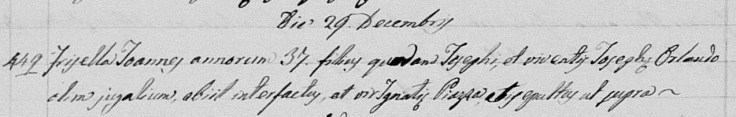 Die 29. Decembris
449 Frisella Joannes annorum 37. filius quondam Josephi, et viventis Josephæ Orlando
olim jugalium, obiit interfectus, et vir Ignatiæ Piazza, et sepultus ut supra ~